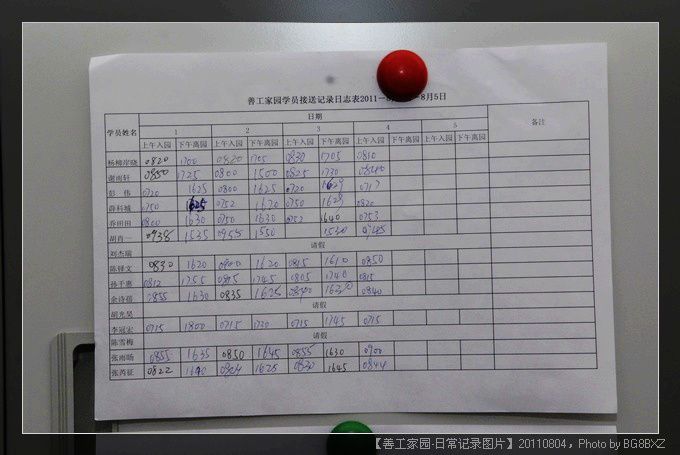 善工家园学员接送记录日志表2011－8月5日
学员姓名 日期 备注
1 2 3 4 5
上午入园 下午离园 上午入园 下午离园 上午入园 下午离园 上午入园 下午离园 上午入园 下午离园
杨柳岸晓 0820 1700 0820 1705 0830 1705 0810
谢雨轩 0850 1725 0800 1500 0825 1730
彭伟 0720 1625 0800 1625 0720 1629 0717
薛科城 0750 1625 0752 1620 0750 1628 0820
乔田田 0800 1630 0750 1630 0752 1640 0753
胡肖一 0938 1535 0955 1550 1530
刘杰瑞 请假
陈铎文 0830 1620 0900 1620 0815 1610 0850
孙千惠 0812 1755 0805 1745 0805 1740 0815
余诗蓓 0855 1630 0835 1625 1630 0840
胡光昊 请假
李冠宏 0715 1800 0715 1730 0715 1745 0715
陈雪梅 请假
张雨旸 0855 1635 0850 1645 0855 1630 0900
张芮征 0822 1640 0824 1625 0830 1645 0844
【善工家园·日常记录图片】20110804，Photo by BG8BXZ